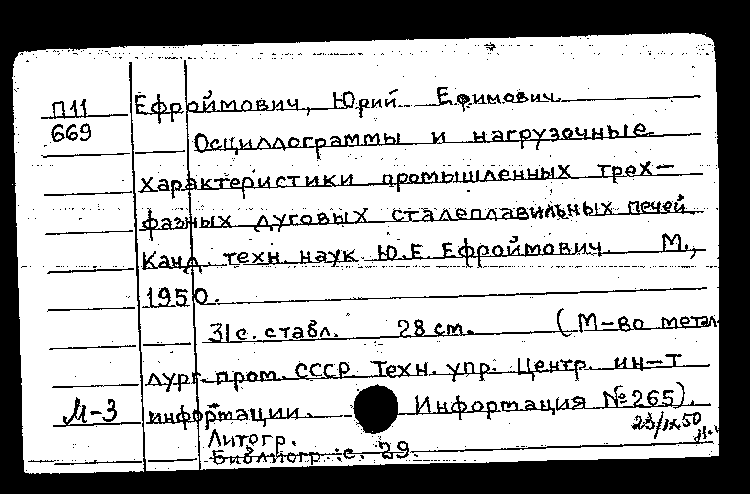 П11 Ефроймович, Юрий Ефимович.
669 Осциллограммы и нагрузочные
характеристики промышленных трех-
фазных дуговых сталеплавильных печей.
Канд. техн. наук Ю.Е. Ефроймович. М.,
1950.
31 с. с табл. 28 см. (М-во метал-
лург. пром. СССР. Техн. упр. Центр. ин-т
М-3 информации. Информация № 265).
23/IX.50
Литогр.
Библиогр.: с. 29.